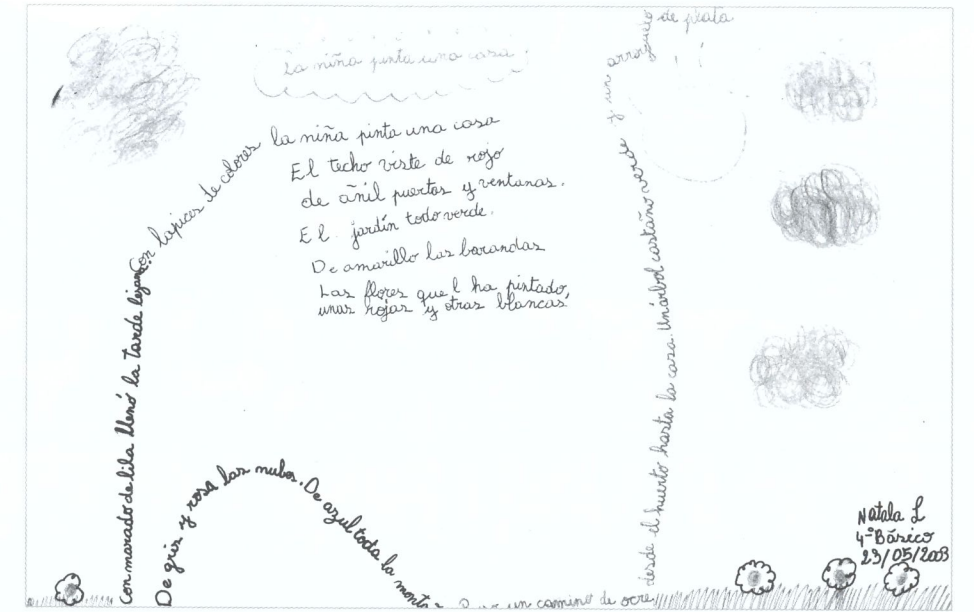 La niña pinta una casa
Con lapices de colores la niña pinta una casa
El techo viste de rojo
de añil puertas y ventanas.
El jardín todo verde.
De amarillo las barandas
Las flores que l ha pintado,
unas rojas y otras blancas
Con morado de lila llenó la tarde
De gris y rosa las nubes. De azul toda la
un camino de ocre
desde el huerto hasta la casa. Un árbol castaño verde y un
de plata
Natala L
4º Básico
23/05/2003